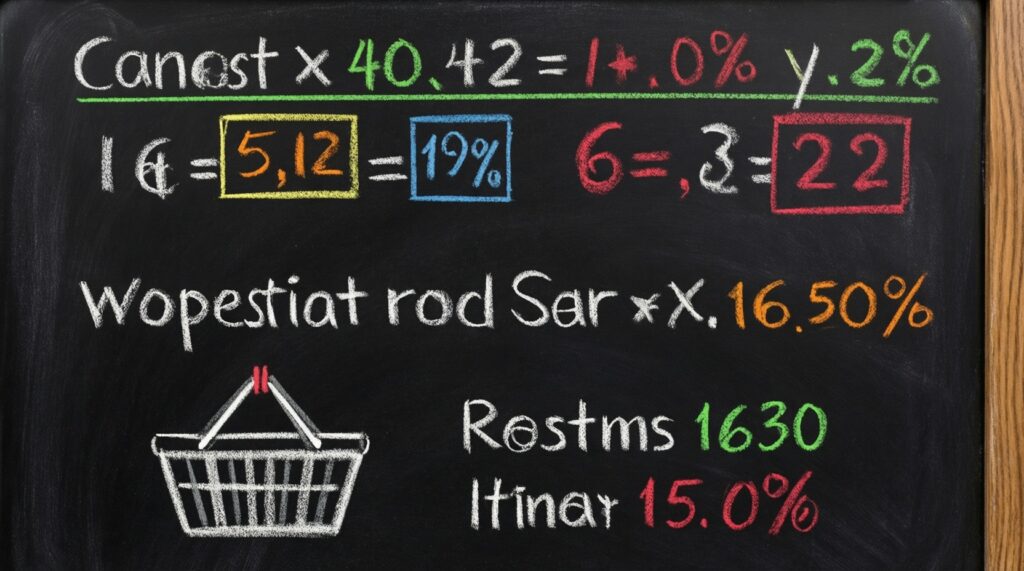 Canost x 40.42 = 1+.0% y.2%
1 = 5,12 = 19% 6=,3= 22
Wopestiat rod Sar *X. 16.50%
Rostms 1630
Itinar 15.0%